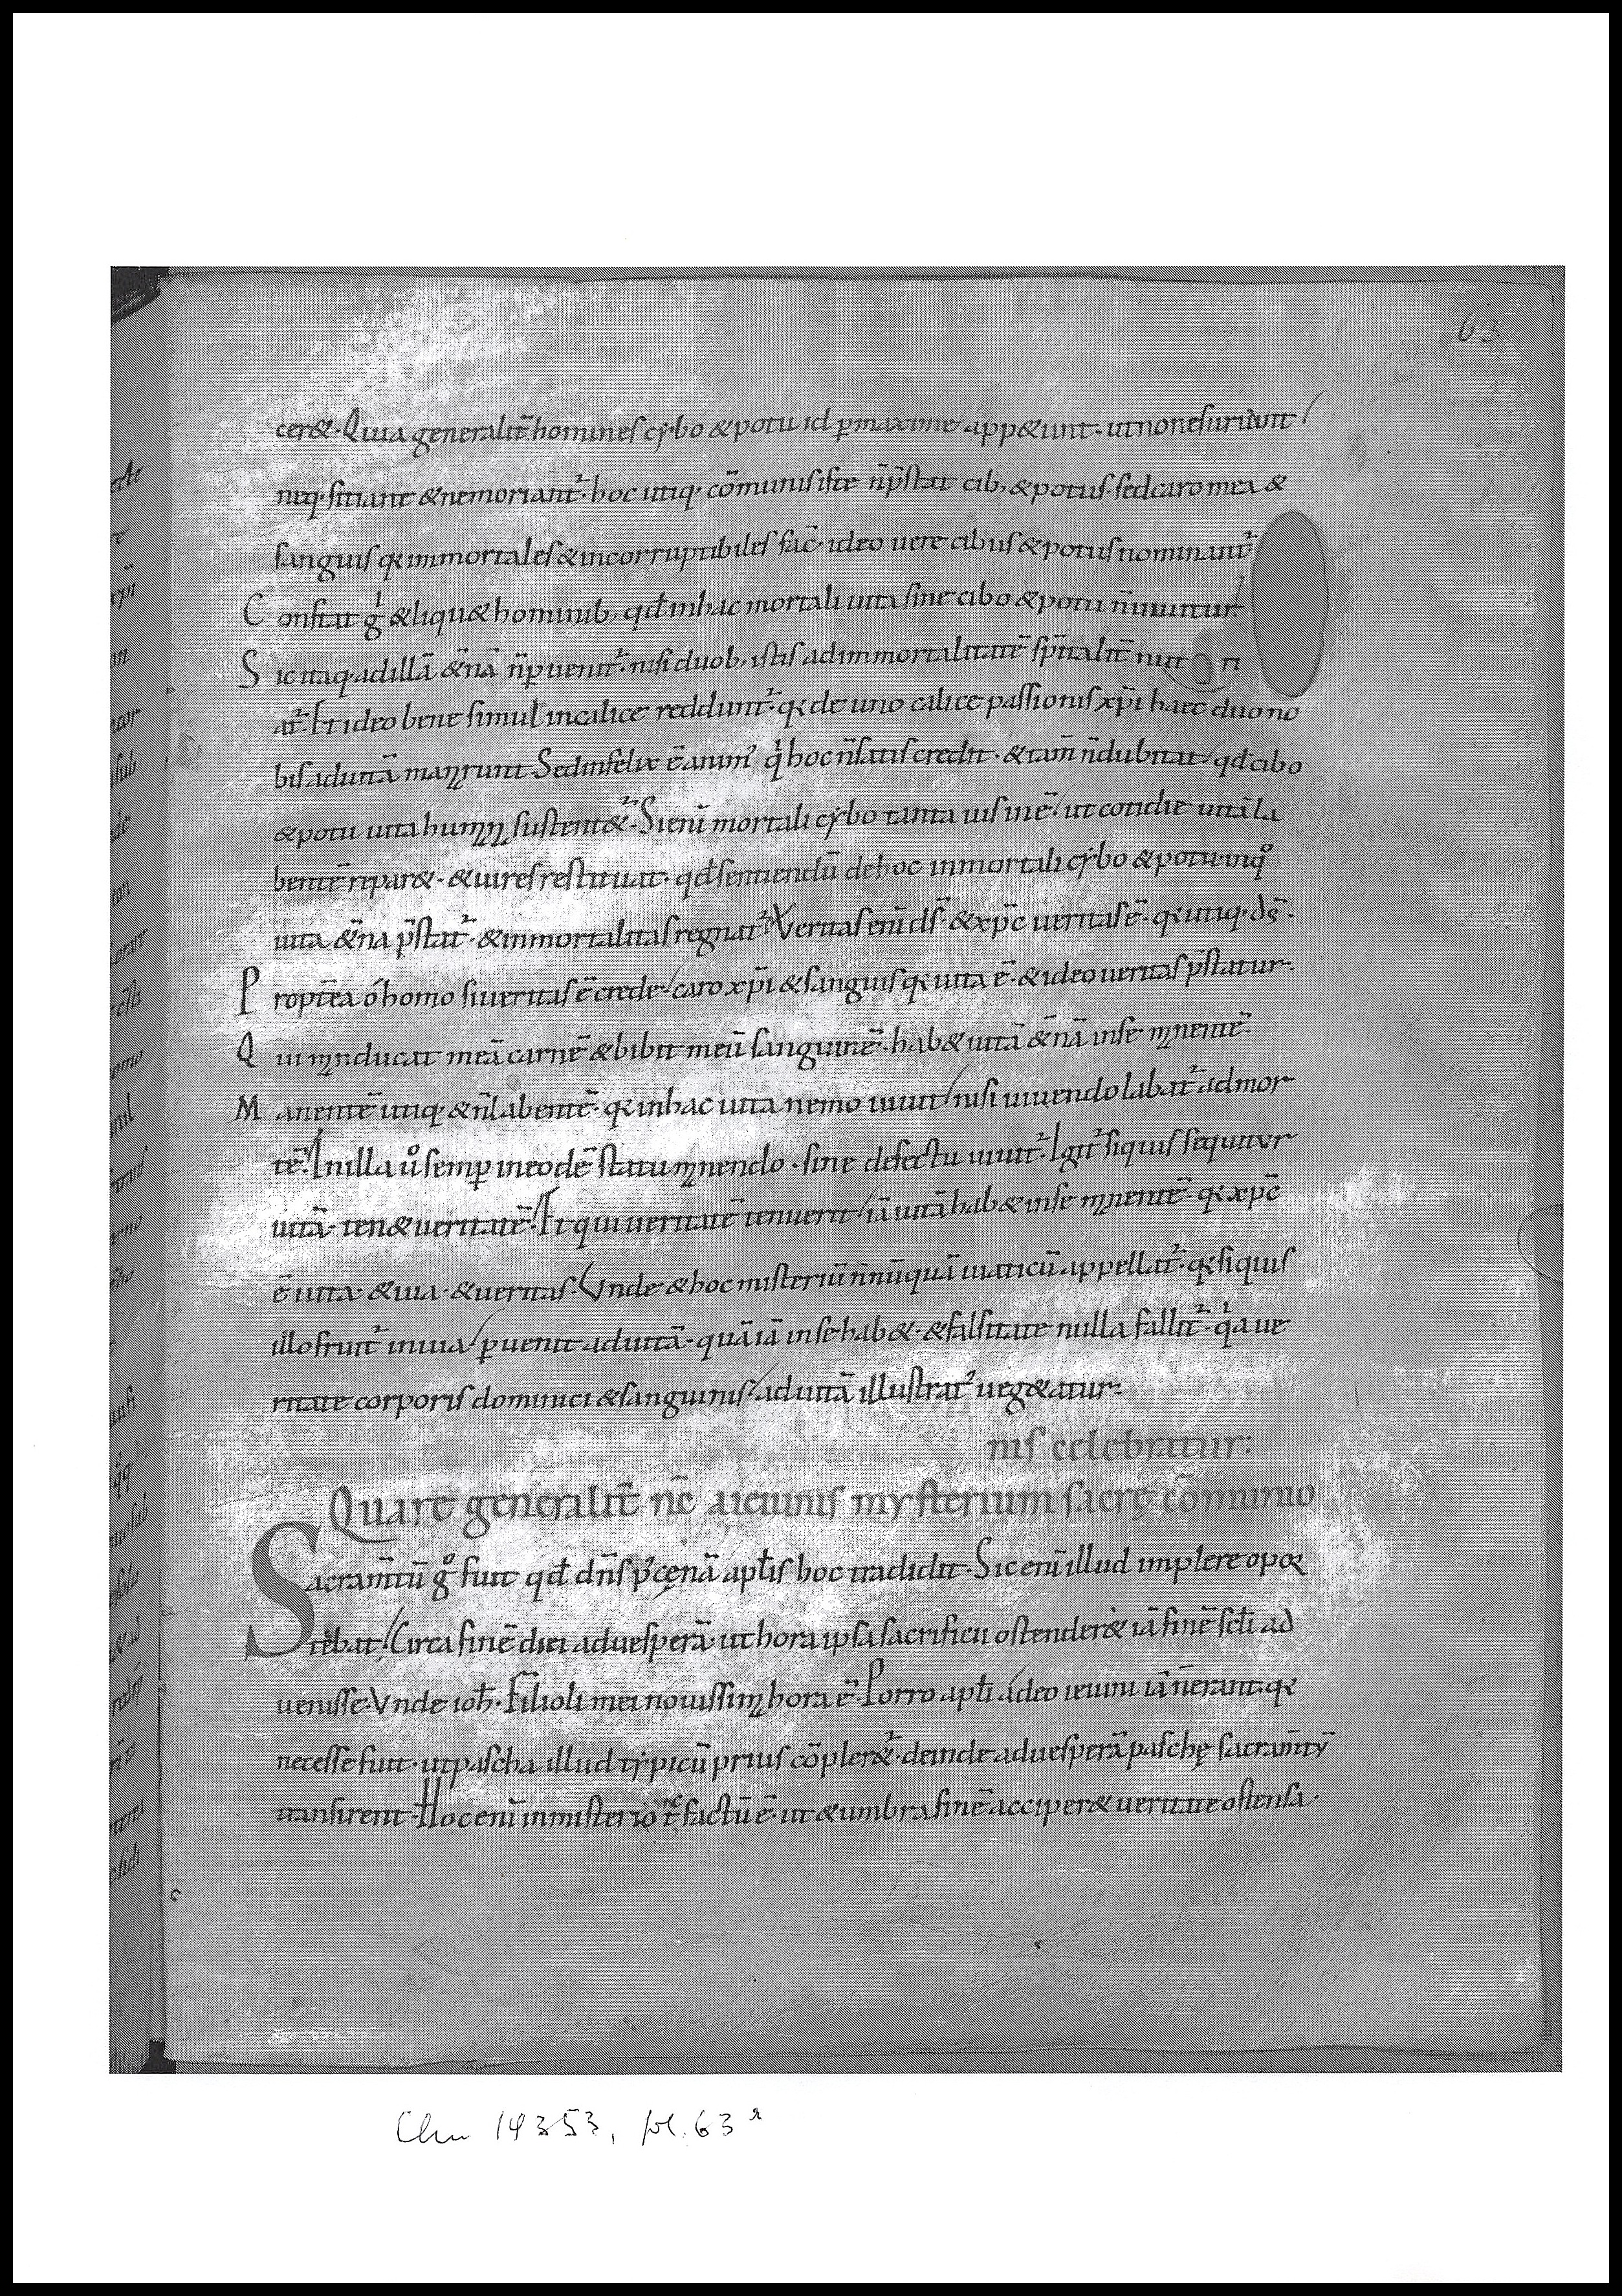 63
cer&. Quia generalit̄ homines cybo & potu id p̱maxime app&unt. ut non esuriant
neq; sitiant & ne moriant᷑. hoc utiq; cōmunis iste n̄ p̄stat cib; & potus. sed caro mea &
sanguis q̇ immortales & incorruptibiles fac̄. ideo uere cibus & potus nominant᷑
Constat gͥ & liqu& hominib; qđ in hac mortali uita sine cibo & potu n̄ uiuitur
Sic itaq; ad illā &̄nā n̄ p̱uenit᷑. nisi duob; istis ad immortalitatē sp̄italit̄ nut ri
at᷑. Et ideo bene simul in calice reddunt᷑. q̇ de uno calice passionis xp̄i haec duo no
bis ad uitā manarunt. Sed infelix ē animꝰ qͥ hoc n̄ satis credit. & tam̄ n̄ dubitat qđ cibo
& potu uita humana sustent&᷑. Si enī mortali cybo tanta uis inē. ut cotidie uitā la
bentē repar&. & uires restituat. qđ sentiendū de hoc inmortali cybo & potu inqͦ
uita &̄na p̄stat᷑. & inmortalitas regnat᷑. Veritas enī ds̄. & xp̄c ueritas ē. q̇ utiq; ds̄.
Propt̄ea ó homo si ueritas ē crede. caro xp̄i & sanguis q̇ uita ē. & ideo ueritas p̄statur.
Qui manducat meā carnē & bibit meū sanguinē. hab& uitā &̄nā in se manentē.
Manentē utiq; & n̄ labentē. q̇ in hac uita nemo uiuit nisi uiuendo labat᷑ ad mor
tē. In illa uͦ semp̱ in eodē statu manendo. sine defectu uiuit᷑. Igit᷑ si quis sequitur
uitā. ten& ueritatē. Et qui ueritatē tenuerit iā uitā hab& in se manentē. q̇ xp̄c
ē uita. & uia. & ueritas. Vnde & hoc misteriū n̄nūquā uiaticū appellat᷑. q̇ si quis
illo fruit᷑ in uia p̱uenit ad uitā. quā iā in se hab&. & falsitate nulla fallit᷑. qͥa ue
ritate corporis dominici & sanguinis ad uitā illustrat᷑ ueg&atur.
nis celebratur:
Quare generalit̄ nc̄ a ieiunis mysterium sacrę cōmunio
Sacram̄tū gͦ fuit qđ dn̄s p᷒ cęnā apłis hoc tradidit. Sic enī illud implere opor
tebat. Circa finē diei ad uesperā. ut hora ipsa sacrificii ostender& iā finē scłi ad
uenisse. Vnde ioh̄. Filioli mei nouissima hora ē. Porro apłi adeo ieiuni iā n̄ erant. q̇
necesse fuit. ut pascha illud typicū prius cōpler&᷑. deinde ad uesperā paschę sacram̄tū
transirent. Hoc enī in misterio tc̄ factū ē. ut & umbra finē acciper& ueritate ostensa.
Clm 14353, fol. 63 r